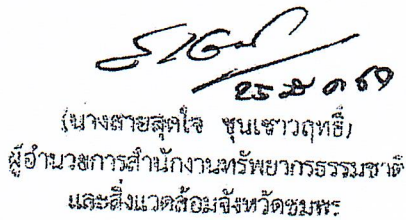 25 มี ค 69
(นางสายสุดใจ ชุนเชาวฤทธิ์)
ผู้อำนวยการสำนักงานทรัพยากรธรรมชาติ
และสิ่งแวดล้อมจังหวัดชุมพร